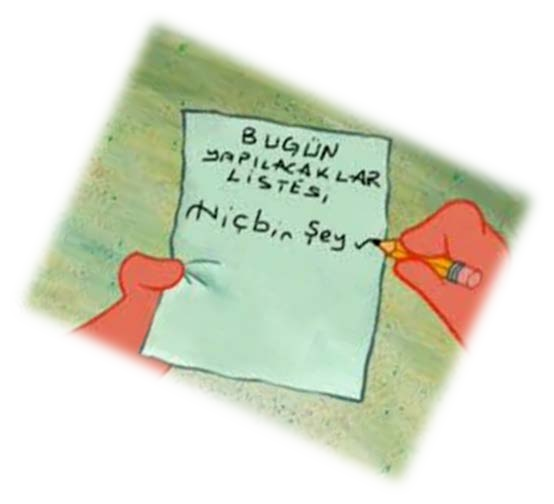 BUGÜN
YAPILACAKLAR
LİSTESİ
Hiçbir Şey ✓